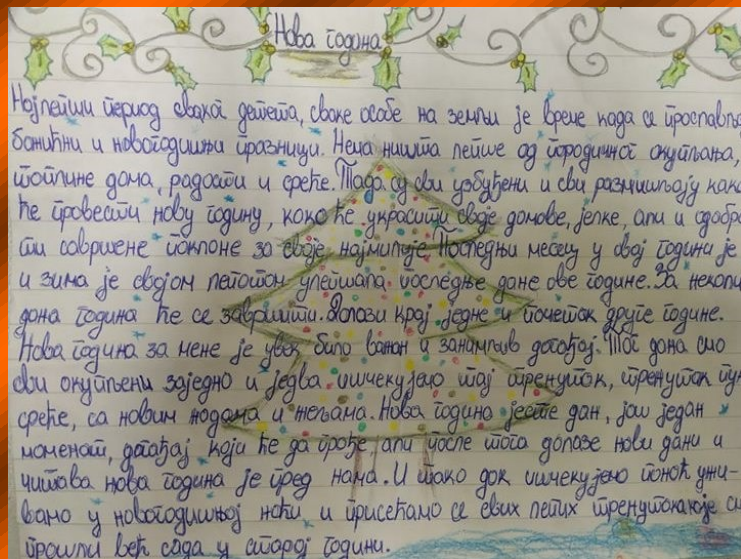 Нова година
Најлепши период сваког детета, сваке особе на земљи је време када се прославља
божићни и новогодишњи празници. Нема ништа лепше од породичног окупљања,
топлине дома, радости и среће. Тада су сви узбуђени и сви размишљају како
ће провести нову годину, како ће украсити своје домове, јелке, али и одабра
ти савршене поклоне за своје најмилије. Последњи месец у овој години је
и зима је својом лепотом улепшала последње дане ове године. За неколи
дана година ће се завршити. Долази крај једне и почетак друге године.
Нова година за мене је увек било важан и занимљив догађај. Тог дана смо
сви окупљени заједно и једва ишчекујемо тај тренутак, тренутак пун
среће, са новим надама и жељама. Нова година јесте дан, још један
моменат, догађај који ће да прође али после тога долазе нови дани и
читава нова година је пред нама. И тако док ишчекујемо поноћ ужи-
вамо у новогодишњој ноћи и присећамо се свих лепих тренутака које см
прошли већ сада у старој години.